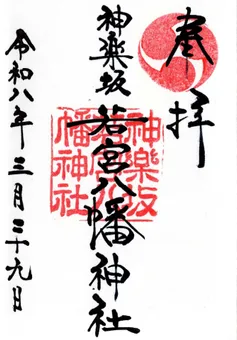 奉拝
神楽坂
若宮八幡神社
令和八年三月二十九日
神樂坂
若宮八
幡神社